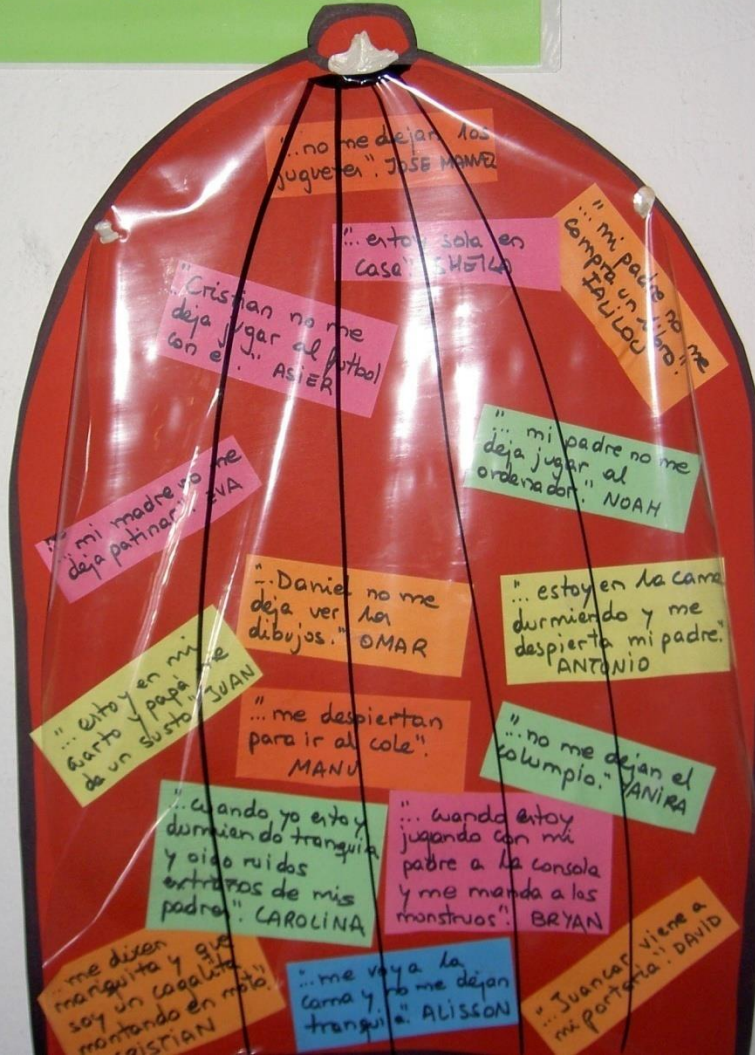 "...no me dejan los
juguetes". JOSE MANUEL
"...estoy sola en
casa". SHEILA
"... mi padre no me
compra un libro."
TALILOU
"Cristian no me
deja jugar al futbol
con el." ASIER
"... mi padre no me
deja jugar al
ordenador." NOAH
"... mi madre no me
deja patinar". EVA
"...Daniel no me
deja ver los
dibujos." OMAR
"... estoy en la cama
durmiendo y me
despierta mi padre."
ANTONIO
"... estoy en mi
cuarto y papá me
da un susto" JUAN
"... me despiertan
para ir al cole".
MANU
"...no me dejan el
columpio." YANIRA
"...cuando yo estoy
durmiendo tranquila
y oigo ruidos
extraños de mis
padres". CAROLINA
"... cuando estoy
jugando con mi
padre a la consola
y me manda a los
monstruos". BRYAN
"...me dicen
mariquita y que
soy un cagalita
montando en moto".
CRISTIAN
"...me voy a la
cama y no me dejan
tranquila." ALISSON
"...Juancar viene a
mi portería". DAVID